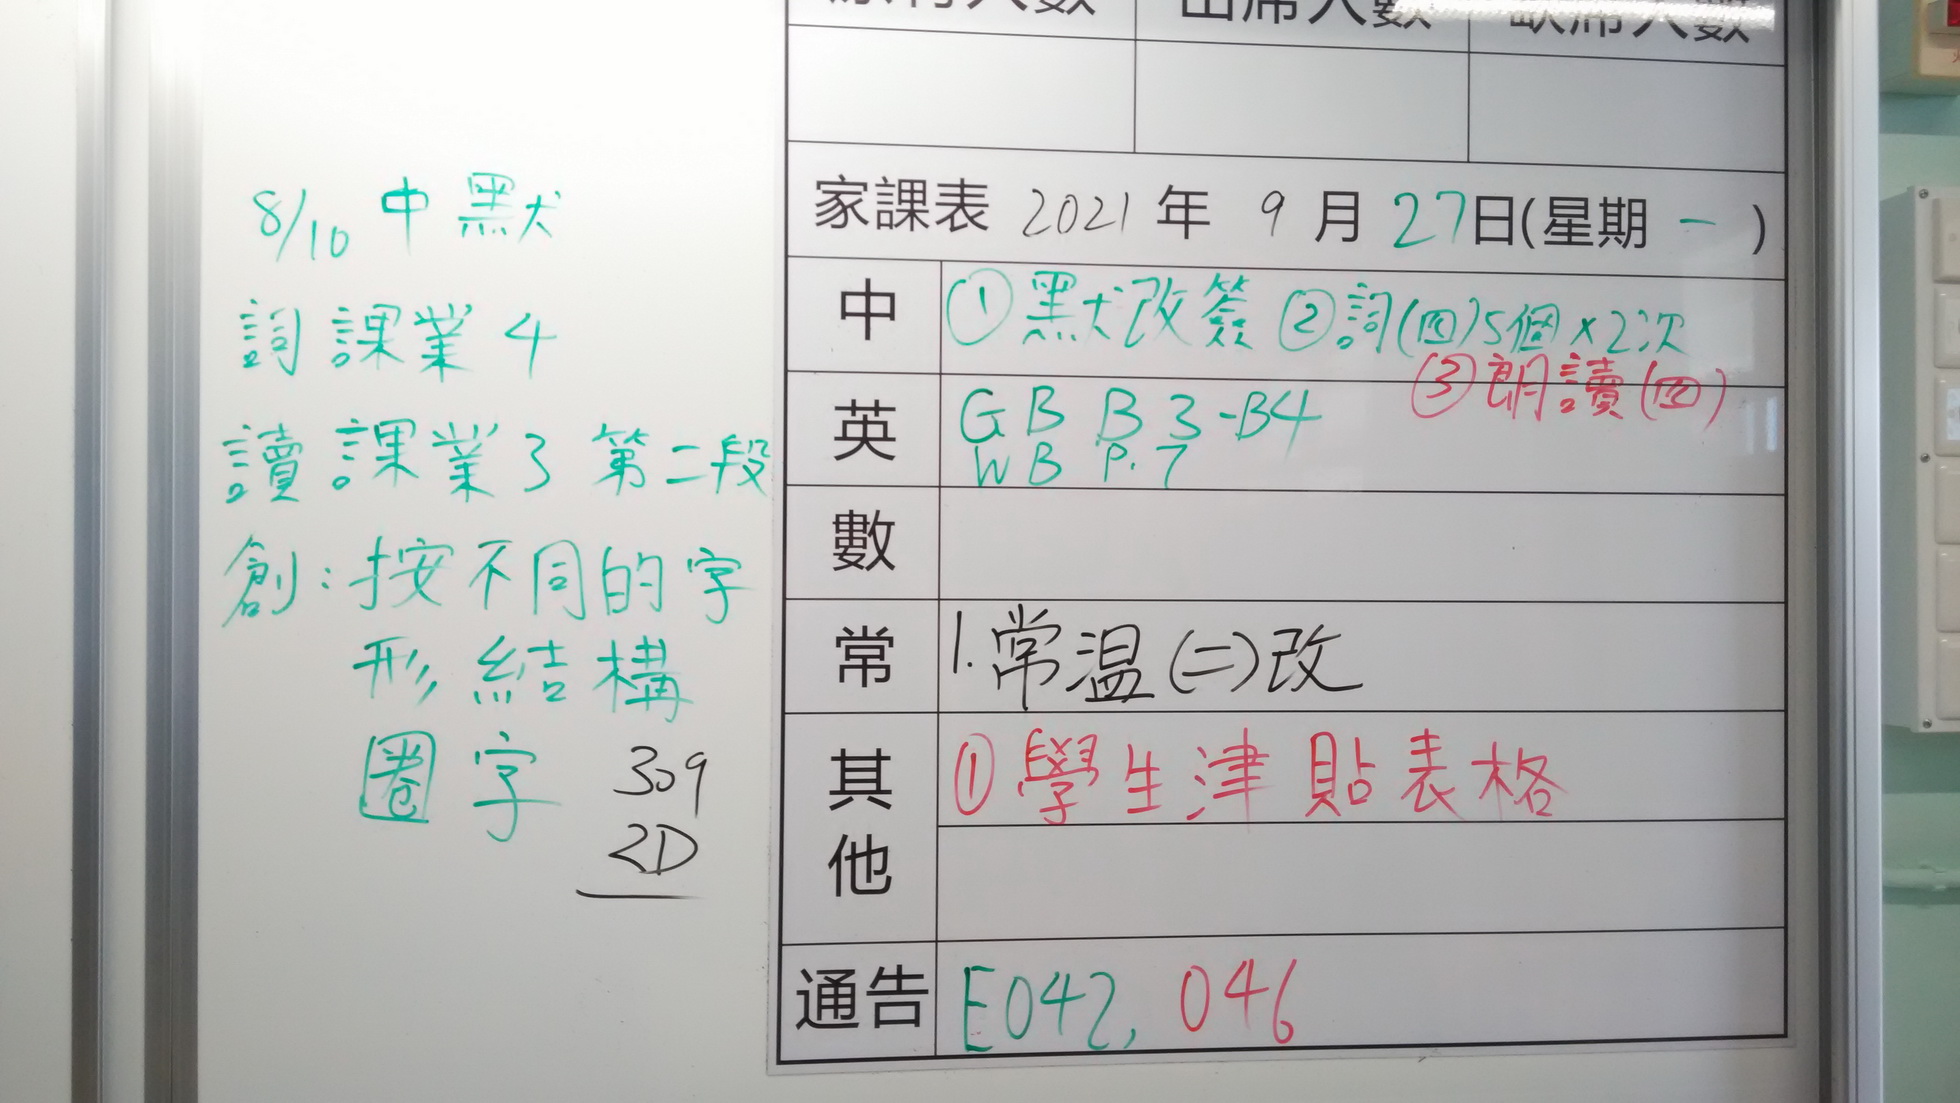 8/10 中默
詞 課業 4
讀 課業 3 第二段
創：按不同的字
形結構
圈字
309
2D
原有人數 出席人數 缺席人數
家課表 2021 年 9 月 27 日(星期 一 )
中 ① 默改簽 ② 詞(四) 5個×2次
③ 朗讀(四)
英 GB B3-B4
WB P.7
數
常 1. 常温(二)改
其他 ① 學生津貼表格
通告 E042, 046